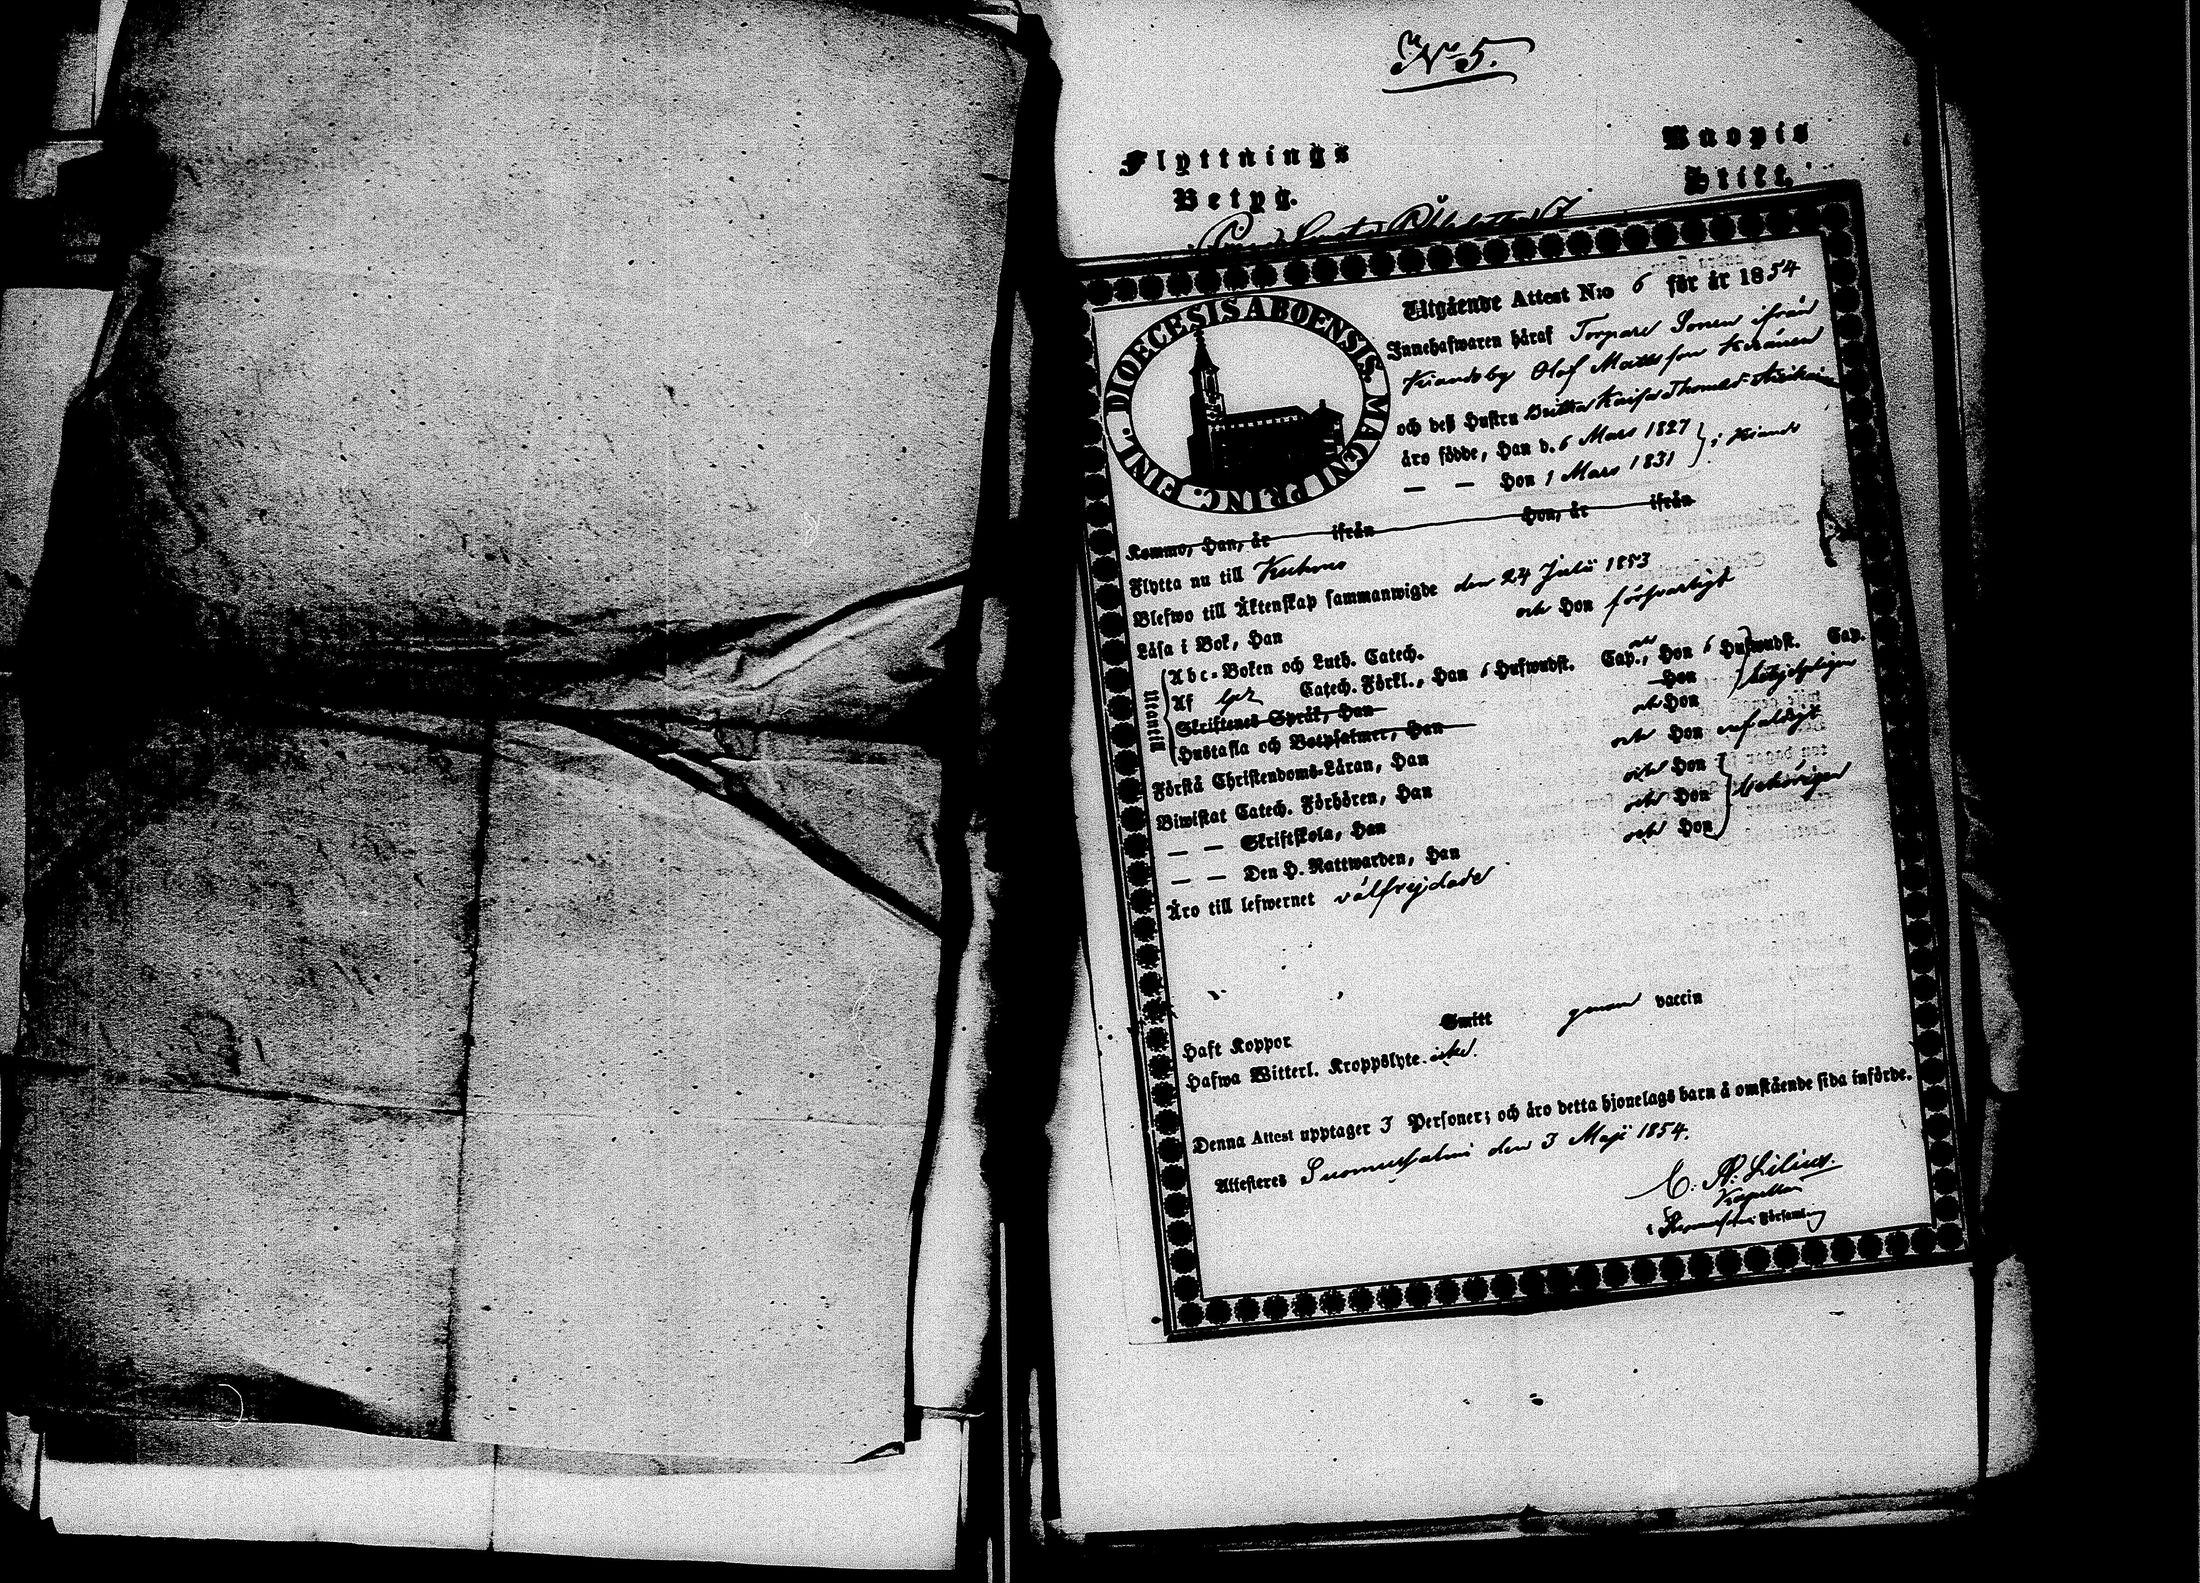 No 5.
Flyttnings
Betyg.
Kuopio
Stift.
DIOECESIS ABOENSIS. MAGNI PRINC. FINL.
Utgående Attest N:o 6 för år 1854
Innehafwaren häraf Torpare Sonen ifrån
Kiandoby Olof Mattsson Keränen
och deß Hustru Britha Kaisa Thomasd.
äro födde, Han d. 6 Mars 1827 } i Kiando
— — Hon 1 Mars 1831
Kommo, Han, år ifrån Hon, år ifrån
Flytta nu till Kuhmo
Blefwo till Äktenskap sammanwigde den 24 Julii 1853
Läsa i Bok, Han och Hon försvarligt
Utantill
Abc-Boken och Luth. Catech.
Af Catech. Förkl., Han 6 Hufwudst. Cap., och Hon 6 Hufwudst. Cap.
Skriftenes Språk, Han Hon
Hustafla och Botpsalmer, Han och Hon
Förstå Christendoms-Läran, Han och Hon enfaldigt
Biwistat Catech. Förhören, Han och Hon
— — Skriftskola, Han och Hon } behörigen
— — Den H. Nattwarden, Han och Hon
Äro till lefwernet välfrejdade
Haft Koppor Smitt genom vaccin
Hafwa Witterl. Kroppslyte icke.
Denna Attest upptager 3 Personer; och äro detta hjonelags barn å omstående sida införde.
Attesteres Suomussalmi den 3 Maji 1854.
C. A. Lilius.
Kapellan
i Suomussalmi Församling